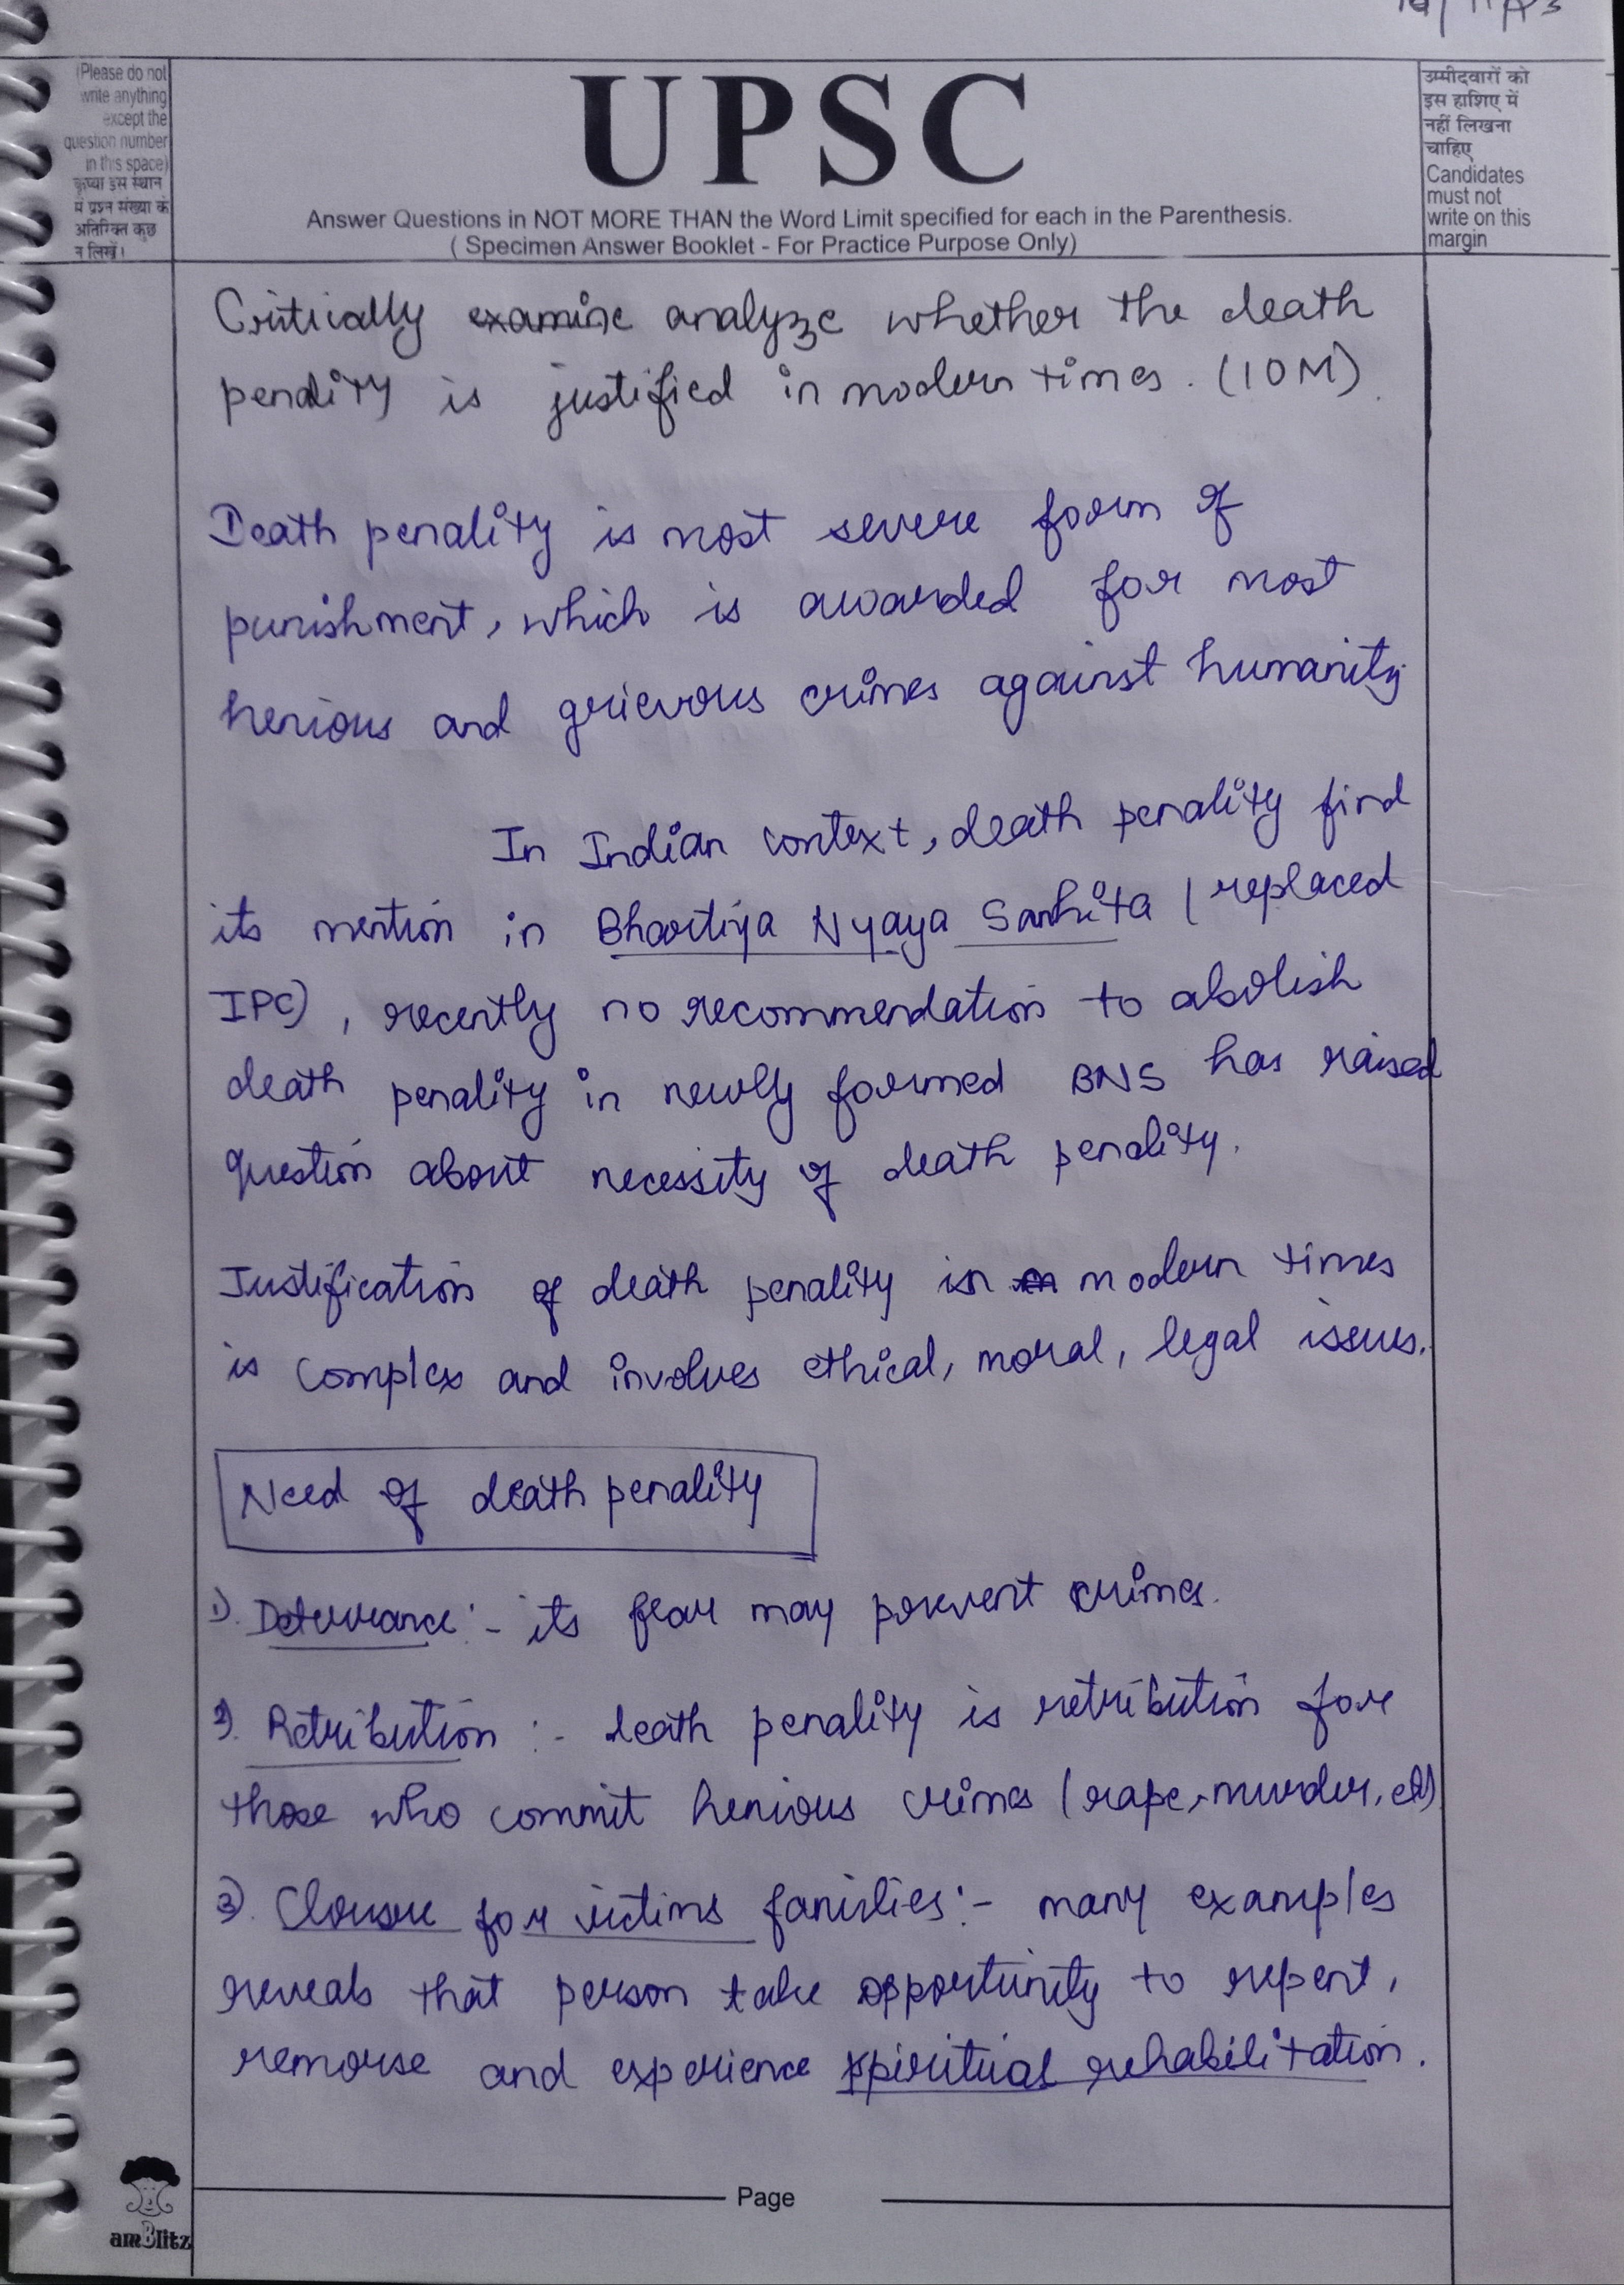 (Please do not
write anything
except the
question number
in this space)
कृप्या इस स्थान
में प्रश्न संख्या के
अतिरिक्त कुछ
न लिखें।
UPSC
Answer Questions in NOT MORE THAN the Word Limit specified for each in the Parenthesis.
( Specimen Answer Booklet - For Practice Purpose Only)
उम्मीदवारों को
इस हाशिए में
नहीं लिखना
चाहिए
Candidates
must not
write on this
margin
Critically examine analyze whether the death
penality is justified in modern times. (10M).
Death penality is most severe form of
punishment, which is awarded for most
henious and grievous crimes against humanity.
In Indian context, death penality find
its mention in Bhartiya Nyaya Sanhita (replaced
IPC), recently no recommendation to abolish
death penality in newly formed BNS has raised
question about necessity of death penality.
Justification of death penality in modern times
is complex and involves ethical, moral, legal issues.
Need of death penality
1). Deterrance:- its fear may prevent crimes.
2). Retribution :- death penality is retribution for
those who commit henious crimes (rape, murder, etc)
3). Closure for victims families:- many examples
reveals that person take opportunity to repent,
remorse and experience spiritual rehabilitation.
Page
amBlitz